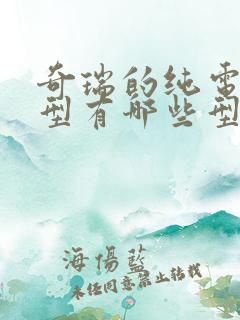 奇瑞的纯电
型有哪些型
海傷藍
未经同意禁止转载